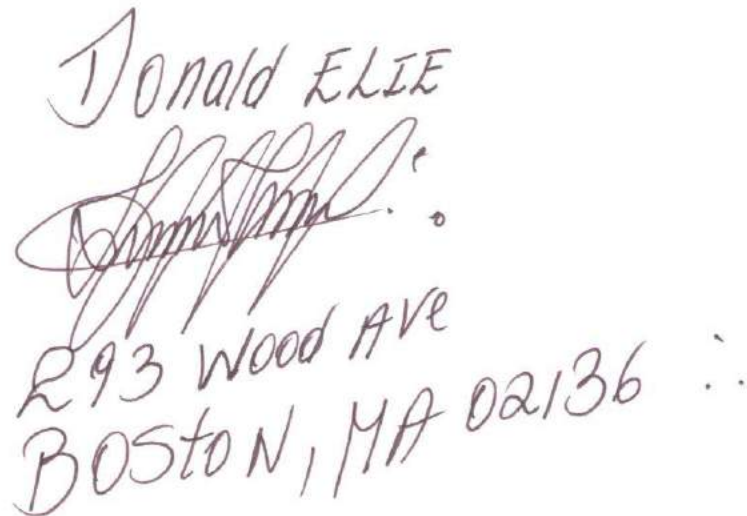 Donald ELIE
293 Wood Ave
BOStON, MA 02136